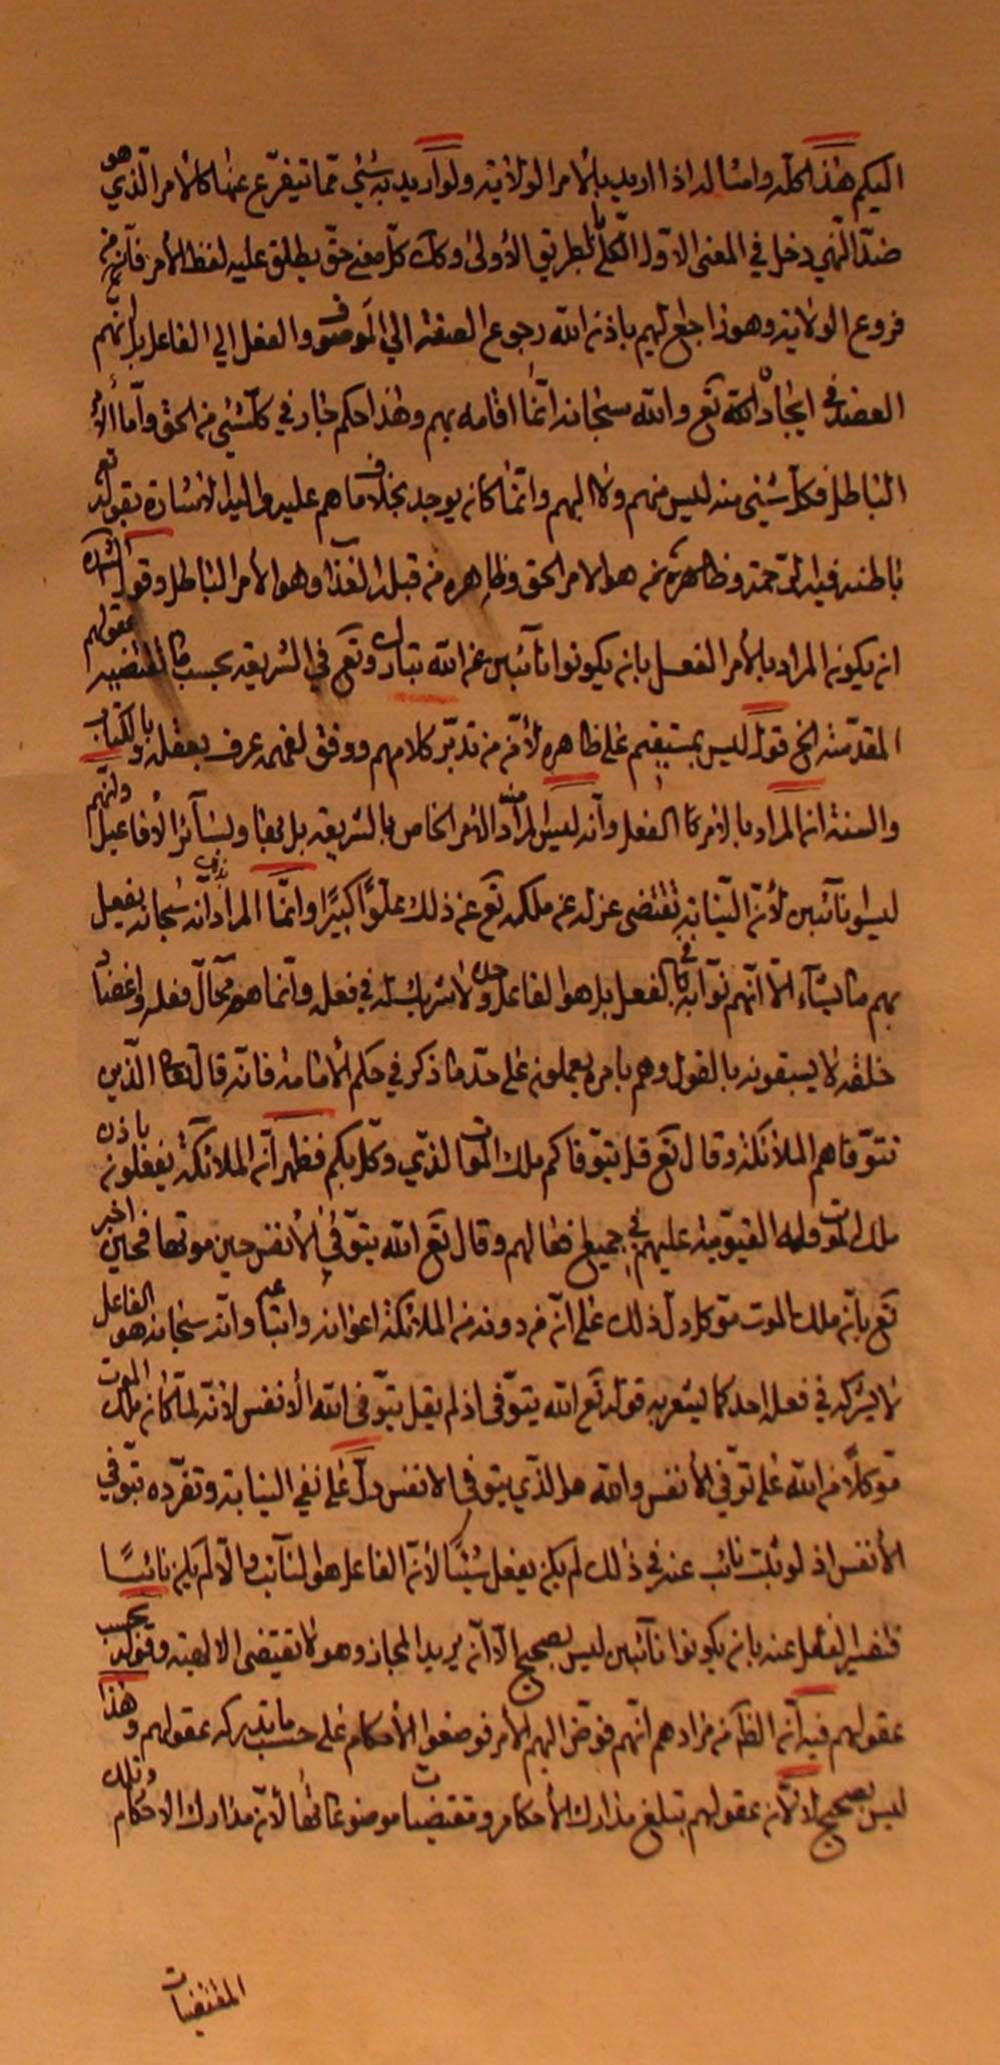 اليكم هذا كله وامثاله اذا اريد بالأمر الولاية ولو اريد به شئ مما يتفرع عنها كالامر الذي هو
ضد النهي دخل في المعنى الاول الكلي بالطريق الأولى وكك كل معنى حق يطلق عليه لفظ الأمر فانه من
فروع الولاية وهو راجع اليهم باذن الله رجوع الصفة الي الموصوف والفعل الي الفاعل بل انهم
العضد في ايجاد الله تع والله سبحانه انما اقامه بهم وهذا حكم جار في كل شئ من الحق واما الأمر
الباطل فكل شئ منه ليس منهم ولا اليهم وانما كان يوجد بخلاف ما هم عليه واليه الاشارة بقوله تع
باطنه فيه الرحمة وظاهره هو الامر الحق وظاهره من قبله العذاب وهو الأمر الباطل وقول الش
ان يكون المراد بالأمر الفعل بان يكونوا نائبين عن الله تبارك وتع في الشريعة بحسب ما تقتضيه عقولهم
المقدسة الخ قول ليس بمستقيم على ظاهره لأن من تدبر كلامهم ووفق لفهمه عرف بعقله وبالكتاب
والسنة ان المراد بالامر الفعل وانه ليس المراد منه الامر الخاص بالشريعة بل بها وبسائر الأفاعيل وانهم
ليسوا نائبين لأن النيابة تقتضي عزله عن ملكه تع عن ذلك علوًا كبيرًا وانما المراد انه سبحانه يفعل
بهم ما يشاء الا انهم نوابه في الفعل بل هو الفاعل وحده لا شريك له في فعله وانما هم محال فعله واعضاد
خلقه لا يسبقونه بالقول وهم بامره يعملون على حد ما ذكر في حكم الأمامة فانه قال تعالى الذين
تتوفاهم الملائكة وقال تع قل يتوفاكم ملك الموت الذي وكل بكم فظهر ان الملائكة يفعلون باذن
ملك الموت وله القيومية عليهم في جميع افعالهم وقال تع الله يتوفى الأنفس حين موتها فحين اخبر
تع بان ملك الموت متوكل دل ذلك على ان من دونه من الملائكة اعوانه واتباعه وانه سبحانه هو الفاعل
لا يشركه في فعله احد كما يشعر به قوله تع الله يتوفى اذ لم يقل يتوفى الله الأنفس لانه لما كان ملك الموت
متوكلًا من الله على توفي الأنفس والله هو الذي يتوفى الانفس دل على نفي النيابة وتفرده بتوفي
الأنفس اذ لو ثبت نائب عنه في ذلك لم يكن يفعل شيئًا لأن الفاعل هو النائب والا لم يكن نائبًا
فتفسير الفعل عنه بان يكونوا نائبين ليس بصحيح الا ان يريد المجاز وهو لا تقتضي الالهية وقوله بحسب
عقولهم فيه ان الظ من مرادهم انهم فوض اليهم الأمر فوضعوا الأحكام على حسب ما تدركه عقولهم وهذا
ليس بصحيح لا لأن عقولهم تبلغ مدارك الأحكام ومقتضيات موضوعاتها لأن مدارك الاحكام وتلك
المقتضيات